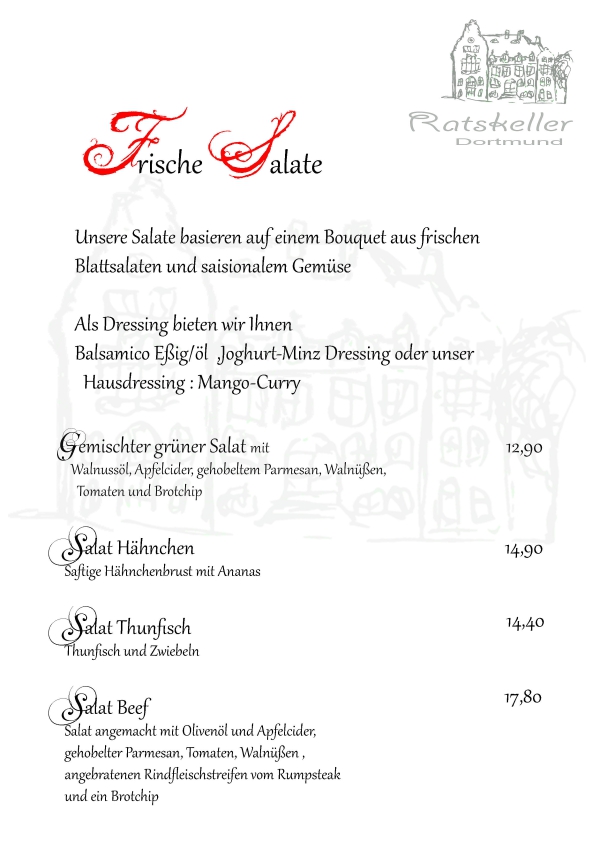 Ratskeller
Dortmund
Frische Salate
Unsere Salate basieren auf einem Bouquet aus frischen
Blattsalaten und saisionalem Gemüse
Als Dressing bieten wir Ihnen
Balsamico Eßig/öl ,Joghurt-Minz Dressing oder unser
Hausdressing : Mango-Curry
Gemischter grüner Salat mit 12,90
Walnussöl, Apfelcider, gehobeltem Parmesan, Walnüßen,
Tomaten und Brotchip
Salat Hähnchen 14,90
Saftige Hähnchenbrust mit Ananas
Salat Thunfisch 14,40
Thunfisch und Zwiebeln
Salat Beef 17,80
Salat angemacht mit Olivenöl und Apfelcider,
gehobelter Parmesan, Tomaten, Walnüßen ,
angebratenen Rindfleischstreifen vom Rumpsteak
und ein Brotchip